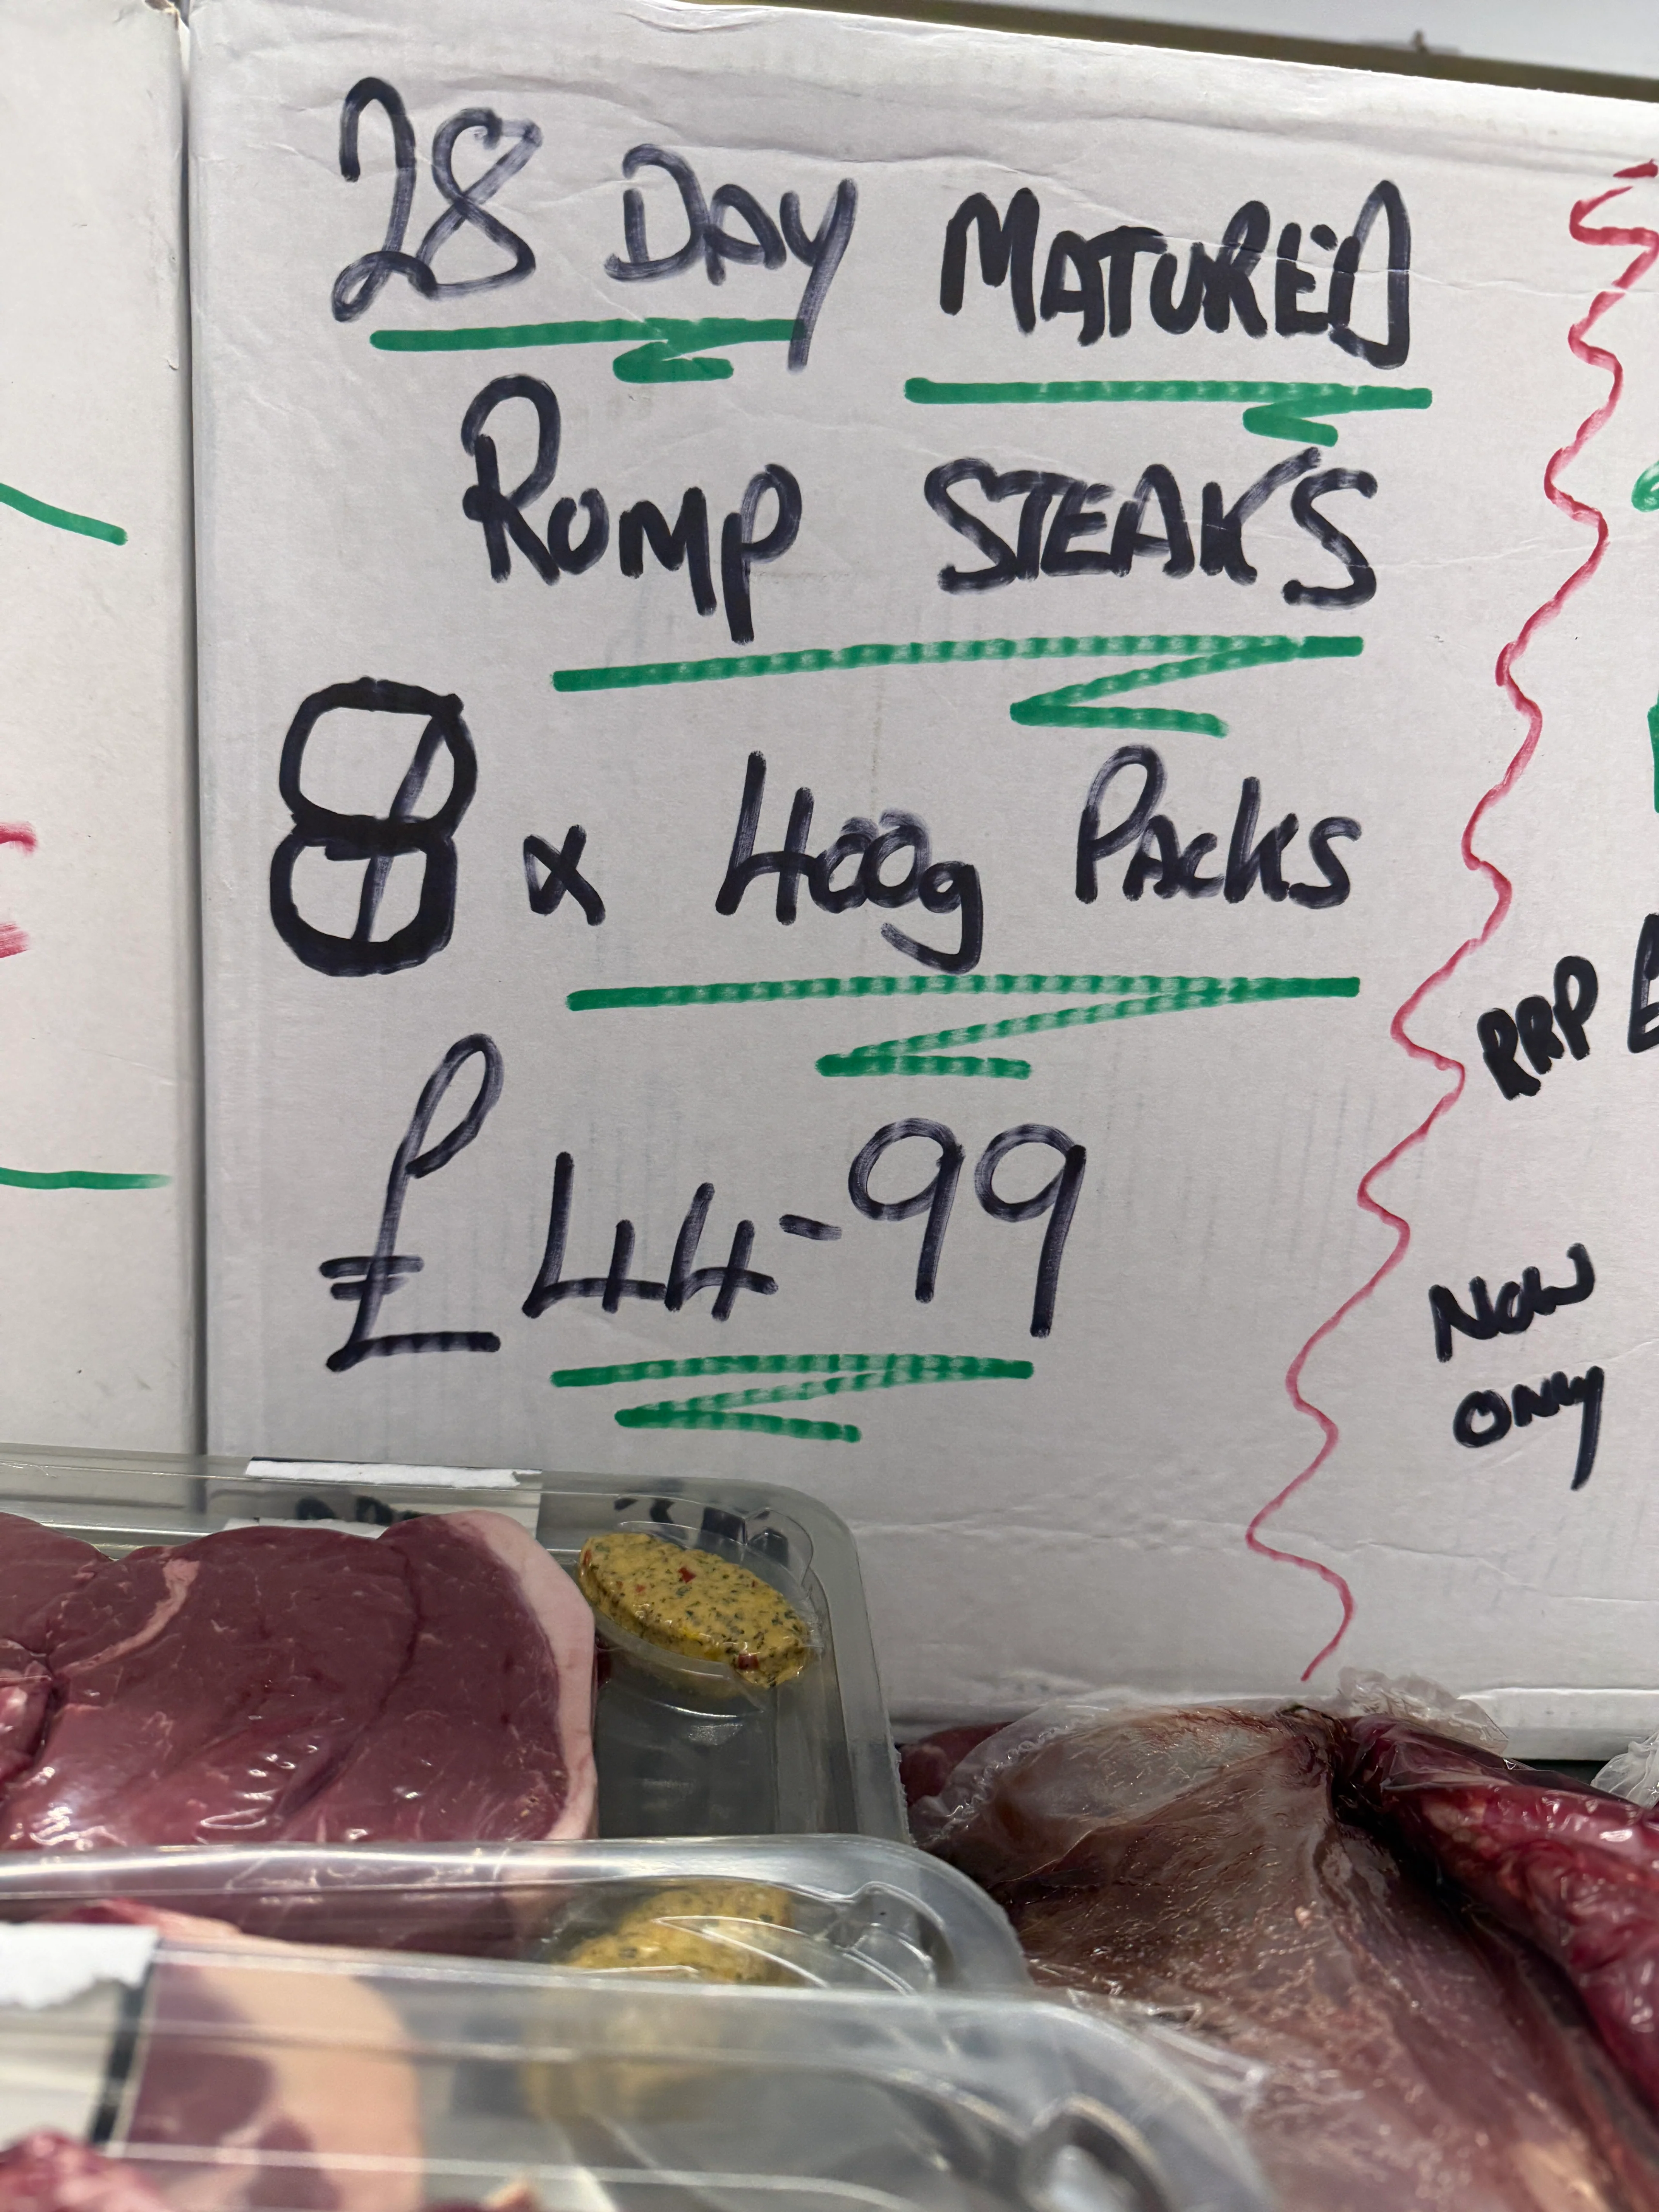 28 DAY MATURED
RUMP STEAKS
8 x 400g PACKS
£44-99
RRP
NOW
ONLY